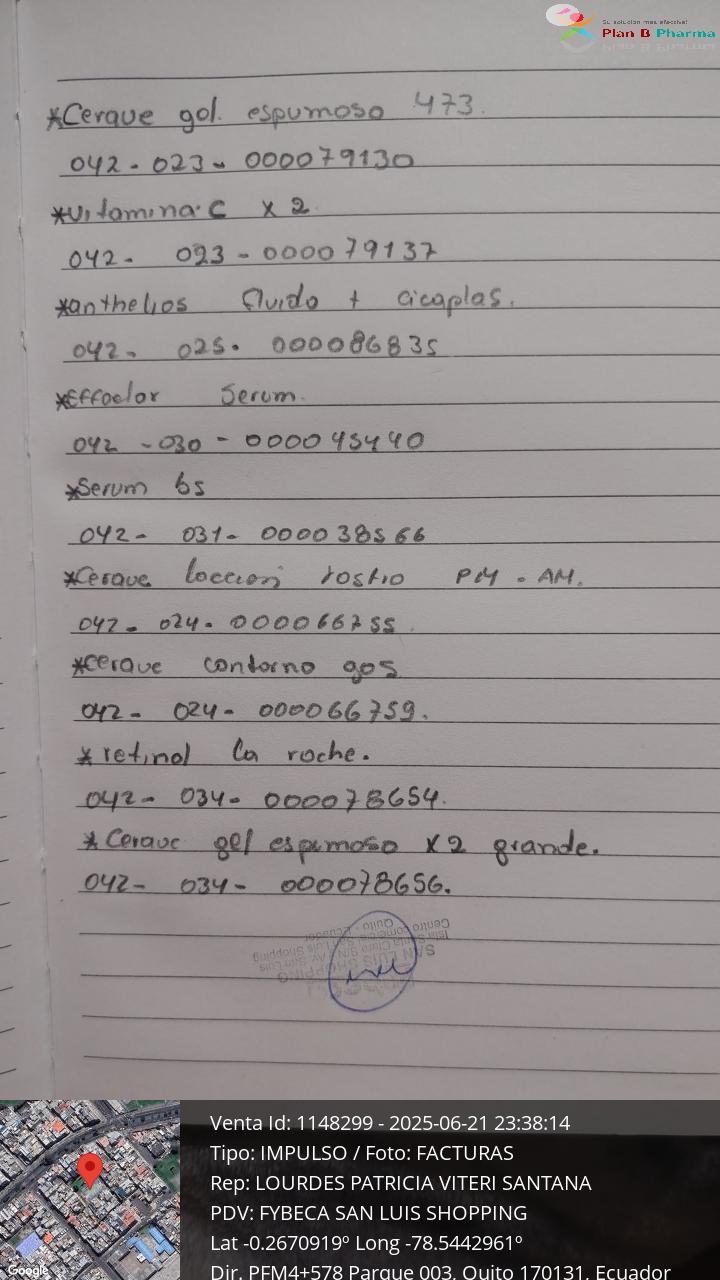 Su solución más efectiva!
Plan B Pharma
*Cerave gol. espumoso 473.
042 - 023 - 000079130
*Vitamina C x 2
042 - 023 - 000079137
*anthelios fluido + cicaplas.
042 - 025 - 000086835
*Effaclar Serum.
042 - 030 - 000045440
*Serum b5
042 - 031 - 000038566
*Cerave loccion rostro PM - AM.
042 - 024 - 000066755
*cerave contorno gos
042 - 024 - 000066759.
*retinol la roche.
042 - 034 - 000078654.
*Cerave gel espumoso x2 grande.
042 - 034 - 000078656.
SAN LUIS SHOPPING
Isla Santa Clara S/N y Av. San Luis
Centro Comercial San Luis Shopping
Quito - Ecuador
Google
Venta Id: 1148299 - 2025-06-21 23:38:14
Tipo: IMPULSO / Foto: FACTURAS
Rep: LOURDES PATRICIA VITERI SANTANA
PDV: FYBECA SAN LUIS SHOPPING
Lat -0.2670919º Long -78.5442961º
Dir. PFM4+578 Parque 003, Quito 170131, Ecuador